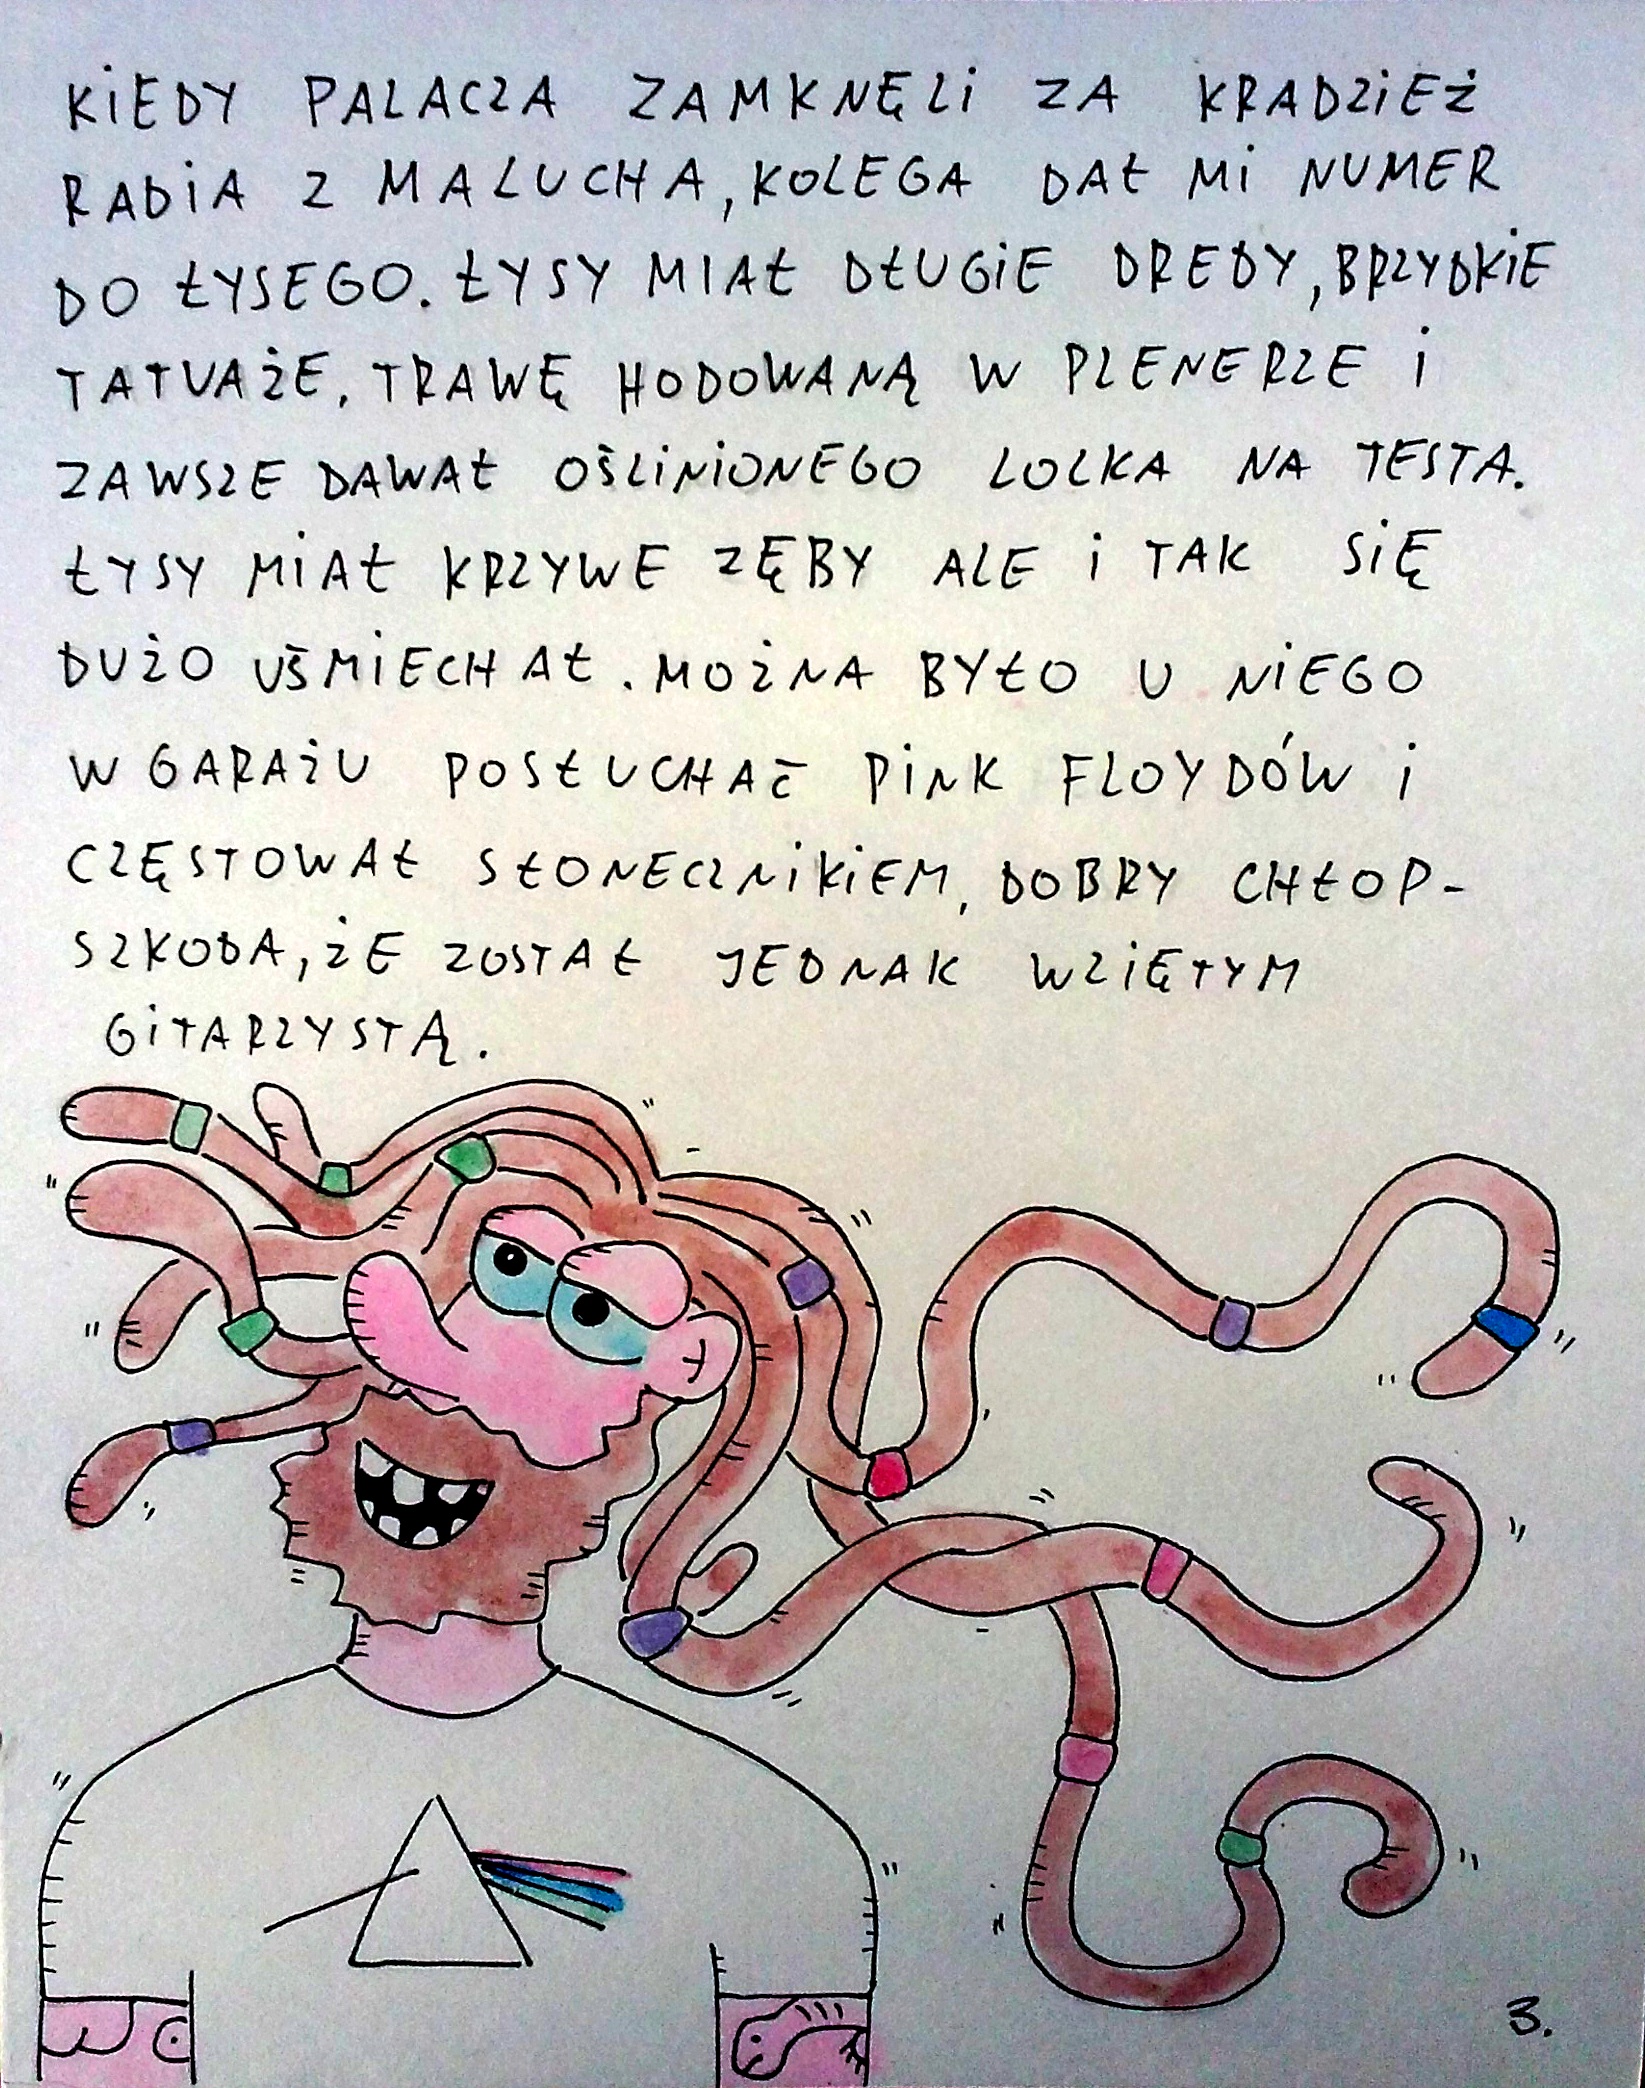 KIEDY PALACZA ZAMKNĘLI ZA KRADZIEŻ
RADIA Z MALUCHA, KOLEGA DAŁ MI NUMER
DO ŁYSEGO. ŁYSY MIAŁ DŁUGIE DREDY, BRZYDKIE
TATUAŻE, TRAWĘ HODOWANĄ W PLENERZE I
ZAWSZE DAWAŁ OŚLINIONEGO LOLKA NA TESTA.
ŁYSY MIAŁ KRZYWE ZĘBY ALE I TAK SIĘ
DUŻO UŚMIECHAŁ. MOŻNA BYŁO U NIEGO
W GARAŻU POSŁUCHAĆ PINK FLOYDÓW I
CZĘSTOWAŁ SŁONECZNIKIEM, DOBRY CHŁOP-
SZKODA, ŻE ZOSTAŁ JEDNAK WZIĘTYM
GITARZYSTĄ.
3.